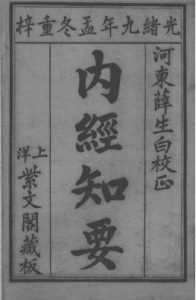 光緒九年孟冬重梓
河東薛生白校正
內經知要
上洋紫文閣藏板